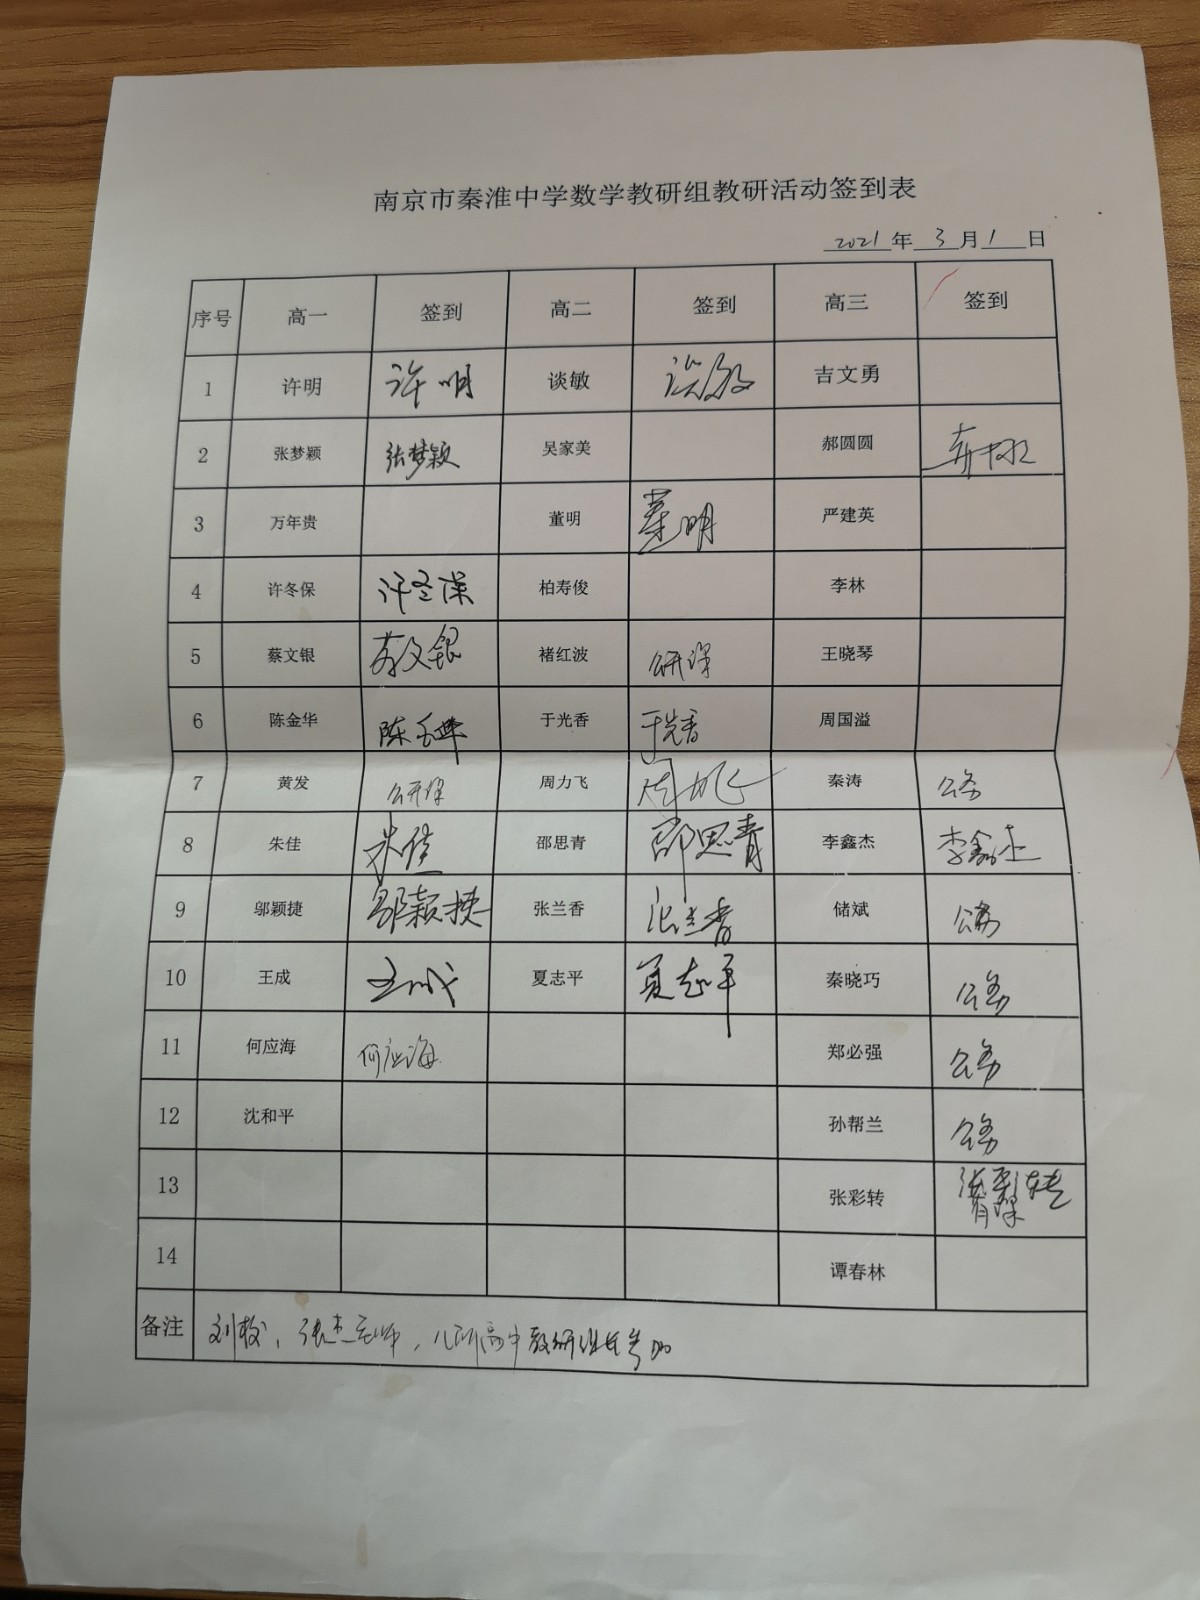 南京市秦淮中学数学教研组教研活动签到表
2021年 3月1日
序号 高一 签到 高二 签到 高三 签到
1 许明 许明 谈敏 谈敏 吉文勇
2 张梦颖 张梦颖 吴家美 郝圆圆
3 万年贵 董明 董明 严建英
4 许冬保 许冬保 柏寿俊 李林
5 蔡文银 蔡文银 褚红波 公开课 王晓琴
6 陈金华 陈金华 于光香 于光香 周国溢
7 黄发 公开课 周力飞 周力飞 秦涛 公务
8 朱佳 朱佳 邵思青 邵思青 李鑫杰 李鑫杰
9 邬颖捷 邬颖捷 张兰香 张兰香 储斌 公务
10 王成 王成 夏志平 夏志平 秦晓巧 公务
11 何应海 何应海 郑必强 公务
12 沈和平 孙帮兰 公务
13 张彩转 张彩转
14 谭春林
备注 刘校，张杰老师，八所高中教研组长参加